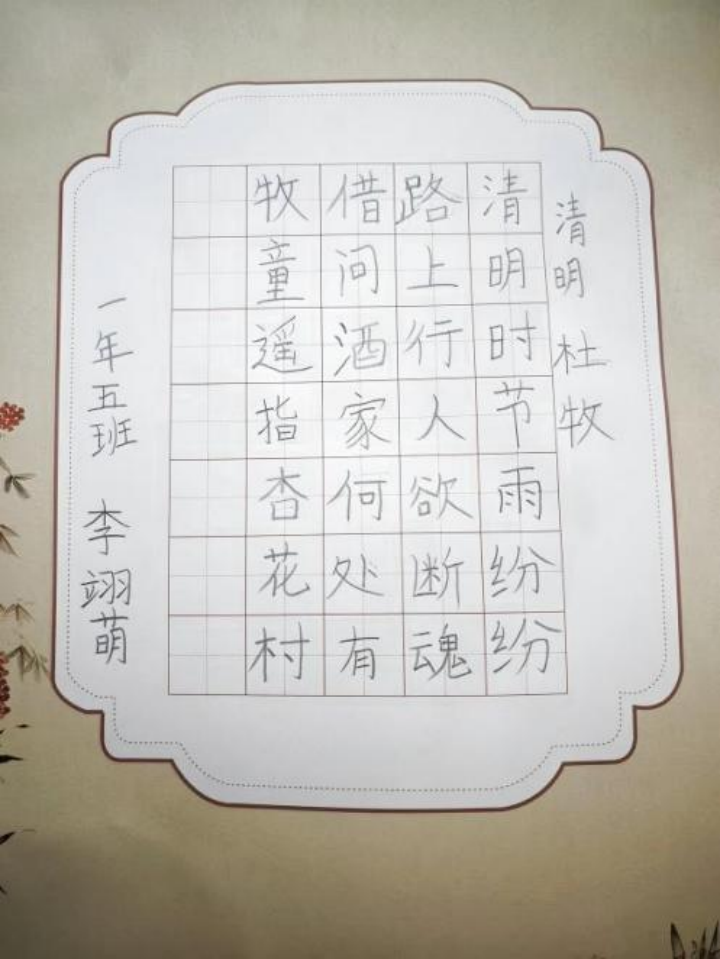 清明 杜牧
清明时节雨纷纷
路上行人欲断魂
借问酒家何处有
牧童遥指杏花村
一年五班 李翊萌